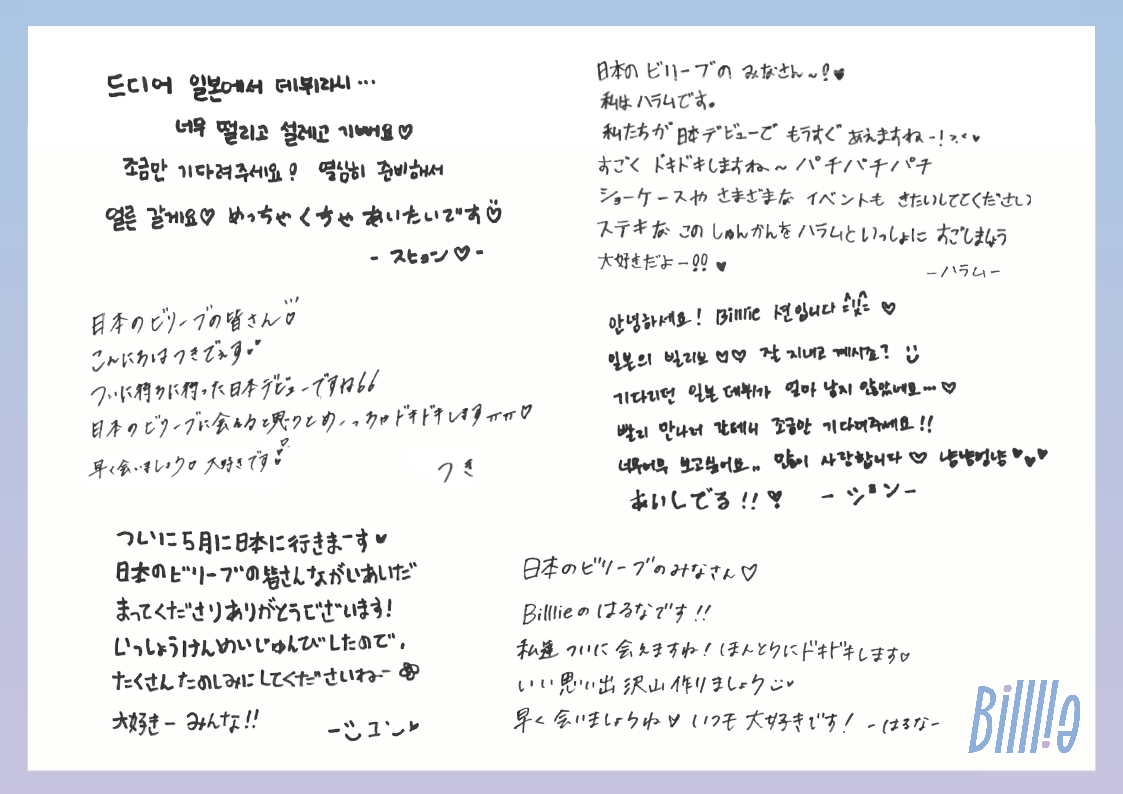 드디어 일본에서 데뷔라니...
너무 떨리고 설레고 기뻐요♡
조금만 기다려주세요? 열심히 준비해서
얼른 갈게요♡ めっちゃくちゃ あいたいです
- スヒョン♡-
日本の ビリーブの みなさん～!♥
私は ハラムです。
私たちが 日本デビューで もうすぐ あえますね-!>.<♥
すごく ドキドキしますね～ パチパチパチ
ショーケースや さまざまな イベントも きたいしててください
ステキな この しゅんかんを ハラムと いっしょに すごしましょう
大好きだよー!! ♥
-ハラム-
日本のビリーブの皆さん♡
こんにちは つきでぇす♥
ついに待ちに待った日本デビューですね
日本のビリーブに会えると思うとめーっちゃドキドキしますㅠㅠ♡
早く会いましょう♡ 大好きです
つき
안녕하세요! Billlie 션입니다 ♡
일본의 빌리브♡♡ 잘 지내고 계시죠?
기다리던 일본 데뷔가 얼마 남지 않았네요...♡
빨리 만나러 갈테니 조금만 기다려주세요!!
너무너무 보고싶어요.. 많이 사랑합니다♡ 냥냥펀냥♥♥♥
あいしてる!! - ション-
ついに5月に日本に行きまーす♥
日本のビリーブの皆さんながいあいだ
まってくださりありがとうございます!
いっしょうけんめいじゅんびしたので、
たくさんたのしみにしてくださいねー
大好きー みんな!!
-シユン♥
日本のビリーブのみなさん♡
Billlieの はるなです!!
私達 ついに 会えますね! ほんとうにドキドキします♡
いい思い出 沢山 作りましょう♥
早く 会いましょうね♥ いつも 大好きです! -はるな-
Billlie